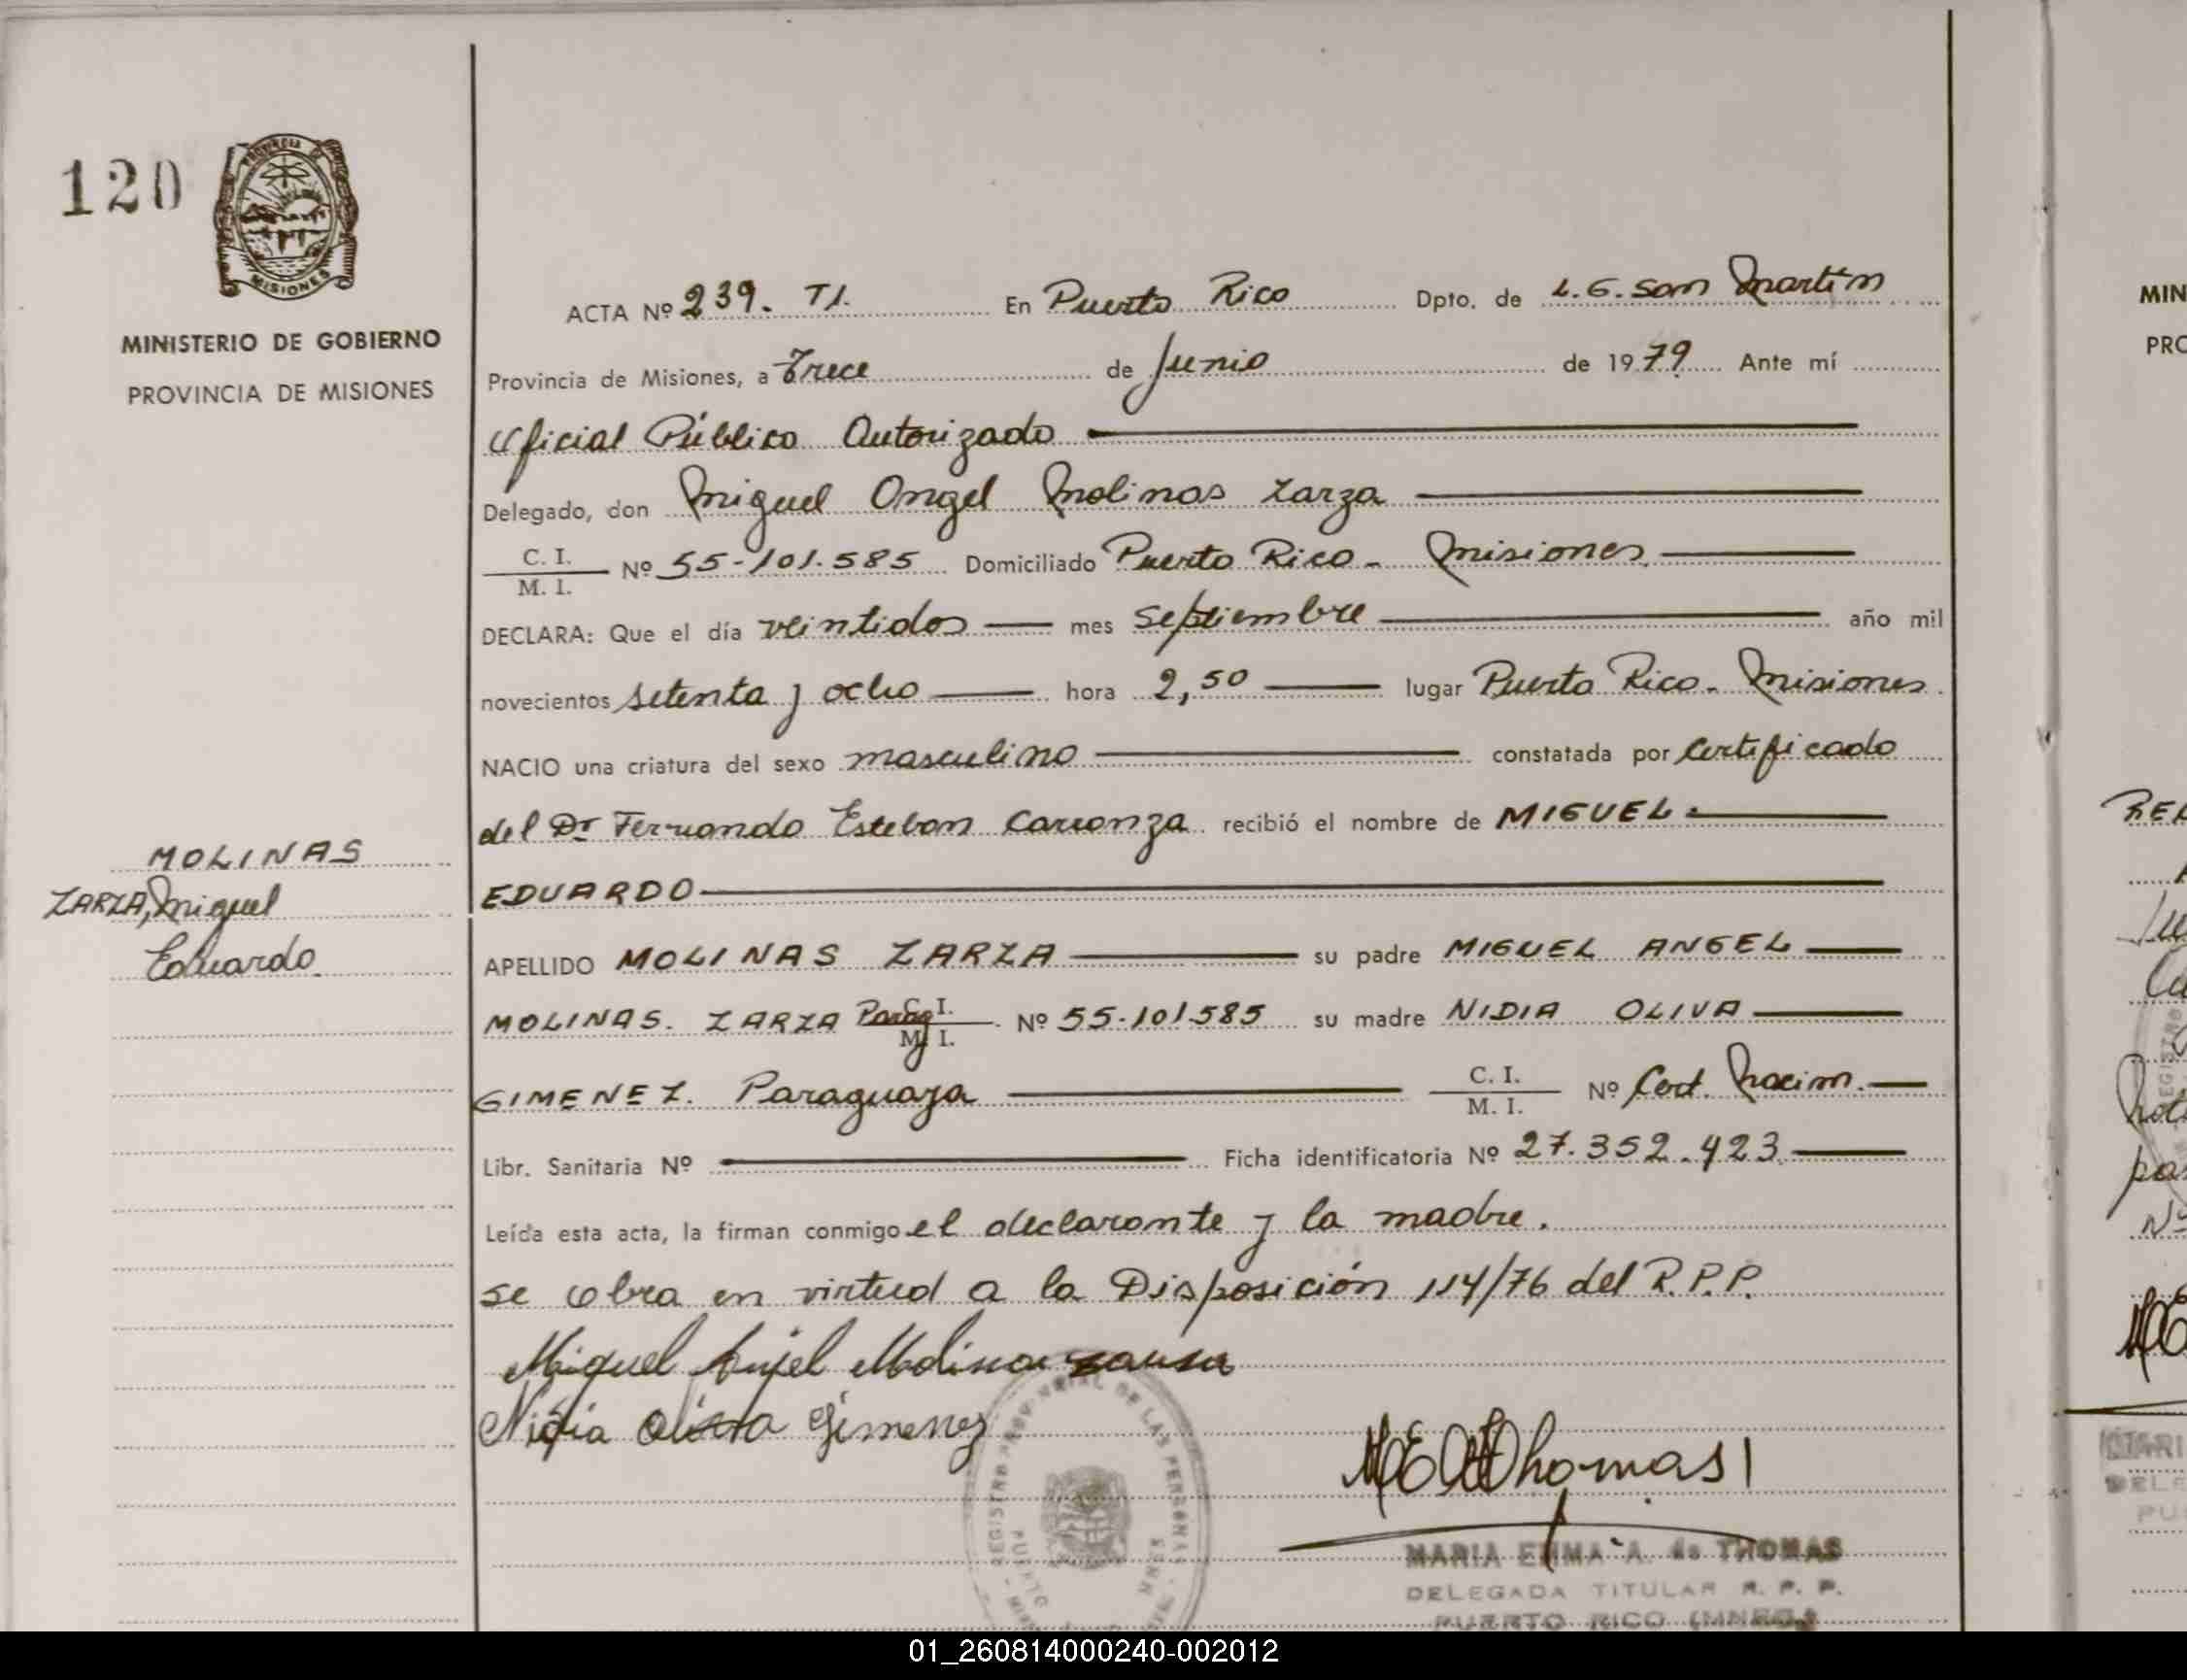 120
PROVINCIA DE
MISIONES
MINISTERIO DE GOBIERNO
PROVINCIA DE MISIONES
MOLINAS
ZARZA, Miguel
Eduardo
ACTA Nº 239. T1. En Puerto Rico Dpto. de L.G. San Martín
Provincia de Misiones, a Trece de Junio de 1979 Ante mí
Oficial Público Autorizado
Delegado, don Miguel Angel Molinas Zarza
C. I.
M. I. Nº 55-101.585 Domiciliado Puerto Rico - Misiones
DECLARA: Que el día veintidos mes septiembre año mil
novecientos setenta y ocho hora 2,50 lugar Puerto Rico - Misiones.
NACIO una criatura del sexo masculino constatada por certificado
del Dr Fernando Esteban Carranza recibió el nombre de MIGUEL
EDUARDO
APELLIDO MOLINAS ZARZA su padre MIGUEL ANGEL
MOLINAS. ZARZA Parag C. I.
M. I. Nº 55-101585 su madre NIDIA OLIVA
GIMENEZ. Paraguaya C. I.
M. I. Nº Cert. Nacim.
Libr. Sanitaria Nº Ficha identificatoria Nº 27.352.423
Leída esta acta, la firman conmigo el declarante y la madre.
se obra en virtud a la Disposición 114/76 del R.P.P.
Miguel Anjel Molina zarza
Nidia Oliva Gimenez
Thomas
REGISTRO PROVINCIAL DE LAS PERSONAS
PUERTO RICO
MARIA EMMA A. de THOMAS
DELEGADA TITULAR R. P. P.
PUERTO RICO (MNES.)
MIN
PRO
01_260814000240-002012